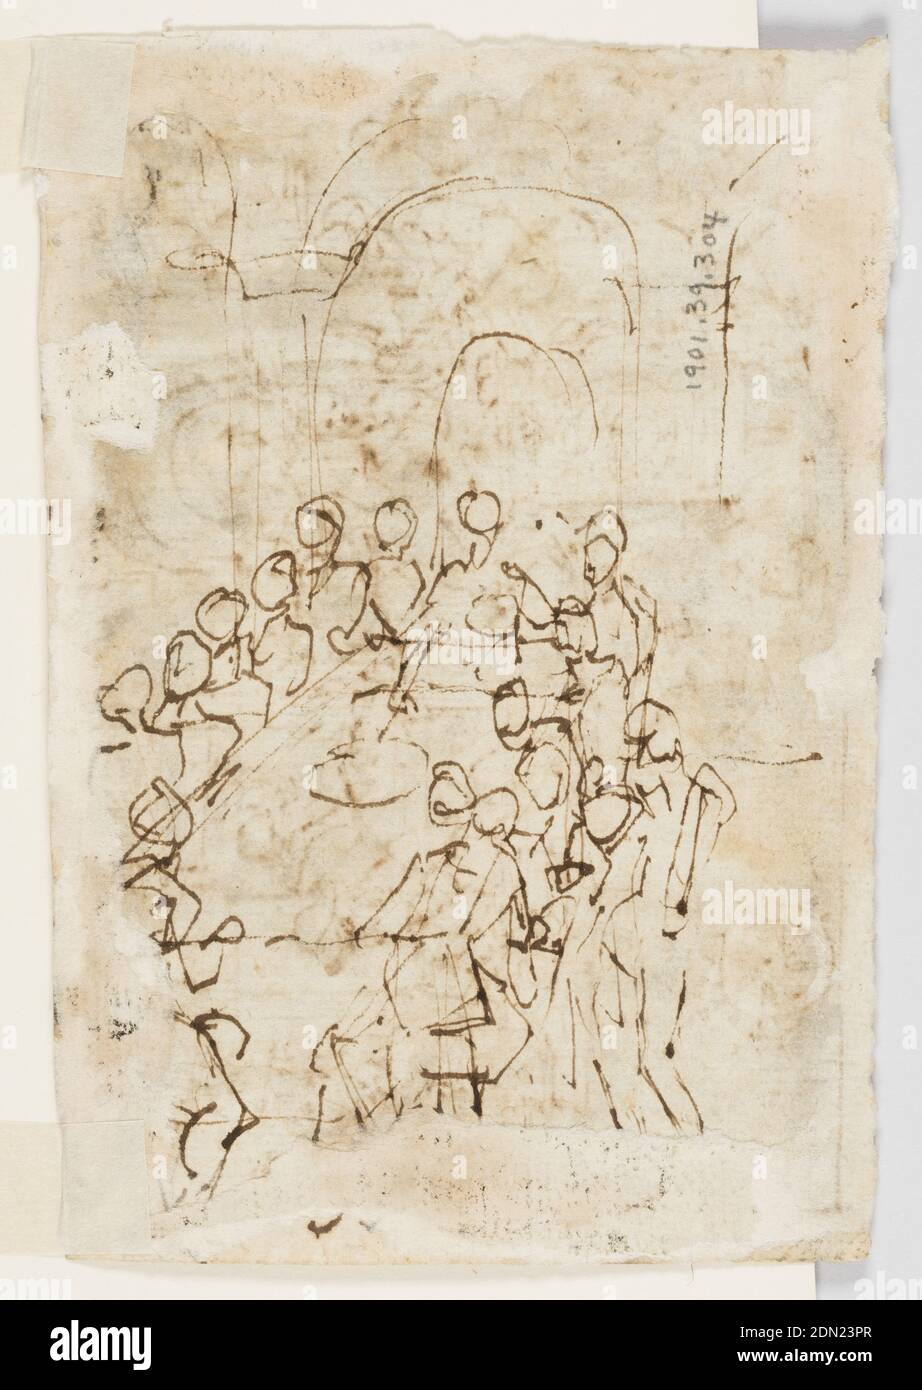 1901.39.304
alamy
alamy
Image ID: 2DN23PR
www.alamy.com